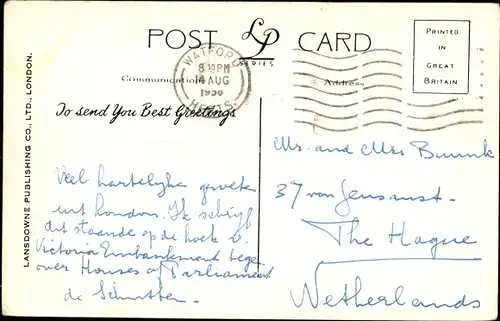 POST CARD
LP
SERIES
PRINTED
IN
GREAT
BRITAIN
WATFORD
HERTS.
8 30 PM
14 AUG
1956
Communication
Address
To send You Best Greetings
LANSDOWNE PUBLISHING CO., LTD., LONDON.
Veel hartelijke groeten
uit London. Ik schrijf
dit staande op de hoek v.
Victoria Embankment tege-
over Houses of Parliament
de
Mr. and Mrs
37 van
The Hague
Netherlands